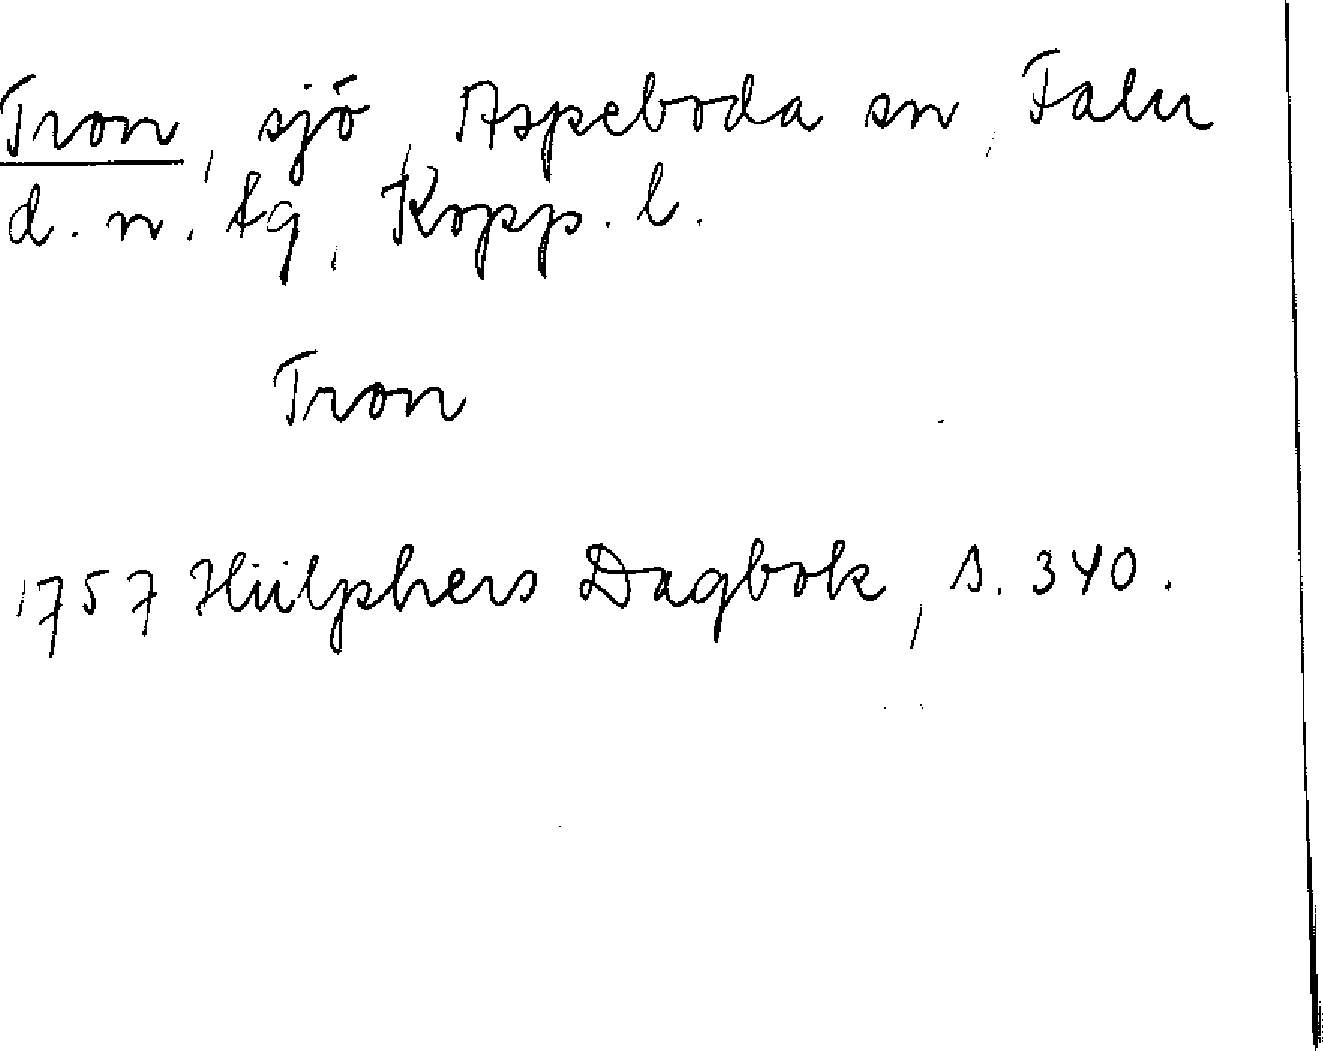 Tron, sjö, Aspeboda sn, Falu
d. n. tg, Kopp. l.
Tron
1757 Hülphers Dagbok, s. 340.